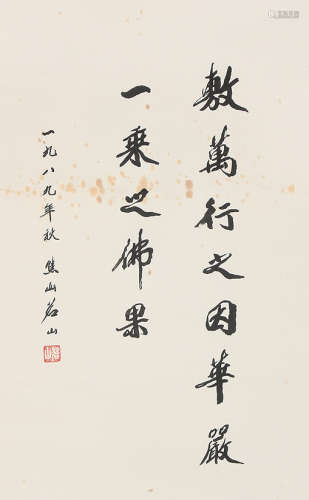 敷萬行之因華嚴
一乘之佛果
一九八九年秋 焦山茗山